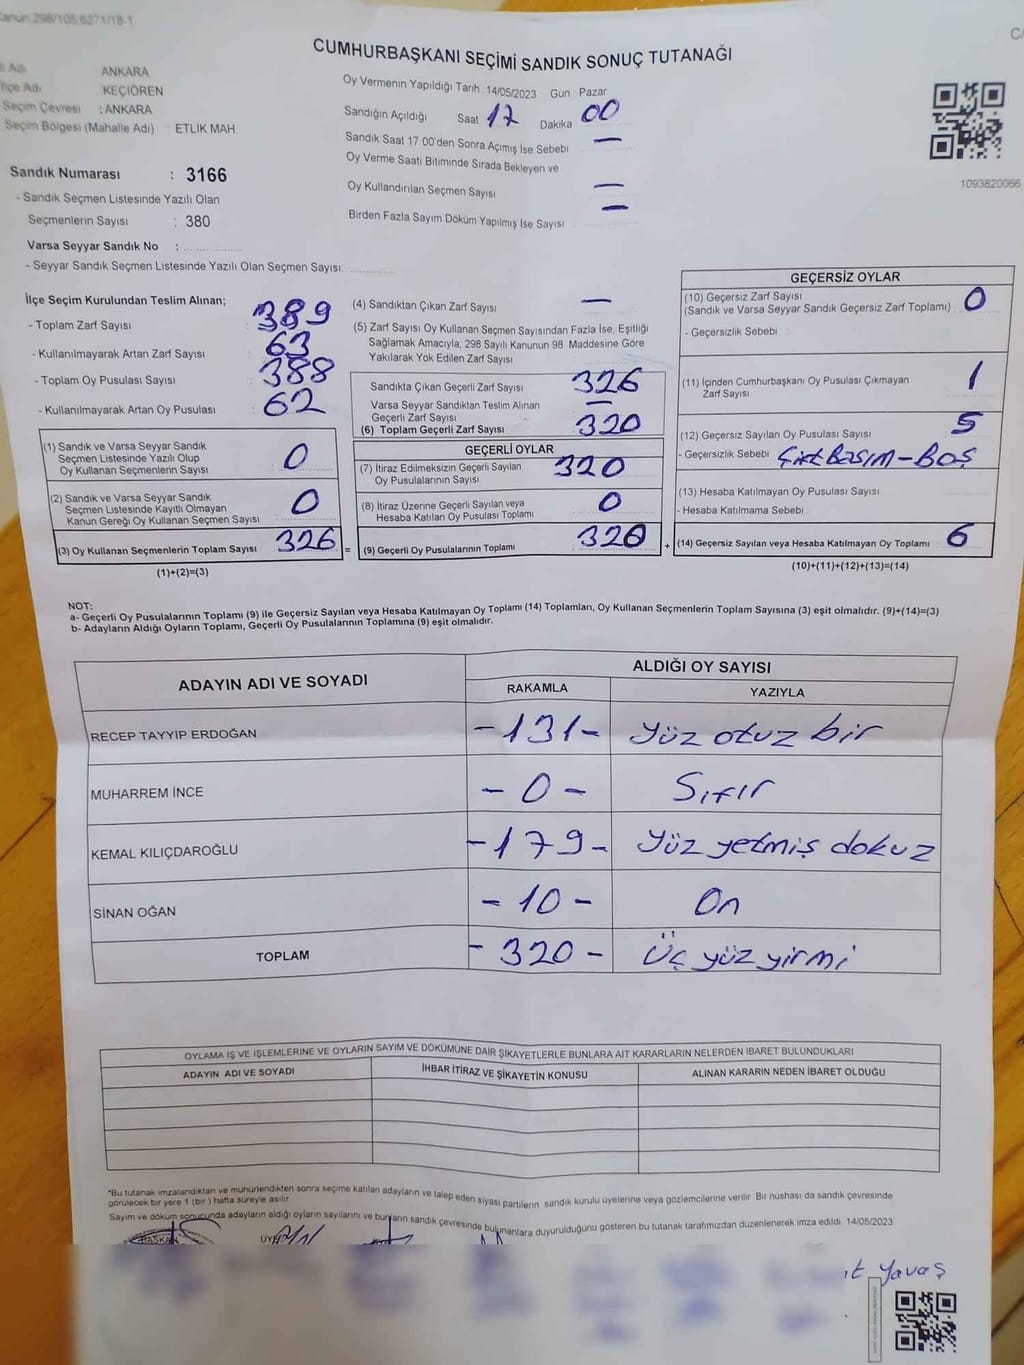 Kanun:298/105;6271/18-1
CUMHURBAŞKANI SEÇİMİ SANDIK SONUÇ TUTANAĞI
İl Adı ANKARA
İlçe Adı KEÇİÖREN
Seçim Çevresi : ANKARA
Seçim Bölgesi (Mahalle Adı) : ETLİK MAH.
Oy Vermenin Yapıldığı Tarih : 14/05/2023 Gün : Pazar
Sandığın Açıldığı Saat 17 Dakika 00
Sandık Saat 17 00'den Sonra Açımış İse Sebebi —
Oy Verme Saati Bitiminde Sırada Bekleyen ve
Oy Kullandırılan Seçmen Sayısı —
Birden Fazla Sayım Döküm Yapılmış İse Sayısı —
1093820066
Sandık Numarası : 3166
- Sandık Seçmen Listesinde Yazılı Olan
Seçmenlerin Sayısı : 380
Varsa Seyyar Sandık No :
- Seyyar Sandık Seçmen Listesinde Yazılı Olan Seçmen Sayısı:
İlçe Seçim Kurulundan Teslim Alınan;
- Toplam Zarf Sayısı 389
- Kullanılmayarak Artan Zarf Sayısı 63
- Toplam Oy Pusulası Sayısı : 388
- Kullanılmayarak Artan Oy Pusulası 62
(1) Sandık ve Varsa Seyyar Sandık
Seçmen Listesinde Yazılı Olup
Oy Kullanan Seçmenlerin Sayısı 0
(2) Sandık ve Varsa Seyyar Sandık
Seçmen Listesinde Kayıtlı Olmayan
Kanun Gereği Oy Kullanan Seçmen Sayısı 0
(3) Oy Kullanan Seçmenlerin Toplam Sayısı 326 =
(1)+(2)=(3)
(4) Sandıktan Çıkan Zarf Sayısı —
(5) Zarf Sayısı Oy Kullanan Seçmen Sayısından Fazla İse, Eşitliği
Sağlamak Amacıyla, 298 Sayılı Kanunun 98 Maddesine Göre
Yakılarak Yok Edilen Zarf Sayısı
Sandıkta Çıkan Geçerli Zarf Sayısı 326
Varsa Seyyar Sandıktan Teslim Alınan
Geçerli Zarf Sayısı —
(6) Toplam Geçerli Zarf Sayısı 320
GEÇERLİ OYLAR
(7) İtiraz Edilmeksizin Geçerli Sayılan
Oy Pusulalarının Sayısı 320
(8) İtiraz Üzerine Geçerli Sayılan veya
Hesaba Katılan Oy Pusulası Toplamı 0
(9) Geçerli Oy Pusulalarının Toplamı 320 +
GEÇERSİZ OYLAR
(10) Geçersiz Zarf Sayısı
(Sandık ve Varsa Seyyar Sandık Geçersiz Zarf Toplamı) 0
- Geçersizlik Sebebi :
(11) İçinden Cumhurbaşkanı Oy Pusulası Çıkmayan
Zarf Sayısı 1
(12) Geçersiz Sayılan Oy Pusulası Sayısı 5
- Geçersizlik Sebebi Çift Basım - Boş
(13) Hesaba Katılmayan Oy Pusulası Sayısı
- Hesaba Katılmama Sebebi :
(14) Geçersiz Sayılan veya Hesaba Katılmayan Oy Toplamı 6
(10)+(11)+(12)+(13)=(14)
NOT:
a- Geçerli Oy Pusulalarının Toplamı (9) ile Geçersiz Sayılan veya Hesaba Katılmayan Oy Toplamı (14) Toplamları, Oy Kullanan Seçmenlerin Toplam Sayısına (3) eşit olmalıdır. (9)+(14)=(3)
b- Adayların Aldığı Oyların Toplamı, Geçerli Oy Pusulalarının Toplamına (9) eşit olmalıdır.
ADAYIN ADI VE SOYADI ALDIĞI OY SAYISI
RAKAMLA YAZIYLA
RECEP TAYYİP ERDOĞAN - 131 - Yüz otuz bir
MUHARREM İNCE - 0 - Sıfır
KEMAL KILIÇDAROĞLU - 179 - Yüz yetmiş dokuz
SİNAN OĞAN - 10 - On
TOPLAM - 320 - Üç yüz yirmi
OYLAMA İŞ VE İŞLEMLERİNE VE OYLARIN SAYIM VE DÖKÜMÜNE DAİR ŞİKAYETLERLE BUNLARA AİT KARARLARIN NELERDEN İBARET BULUNDUKLARI
ADAYIN ADI VE SOYADI İHBAR İTİRAZ VE ŞİKAYETİN KONUSU ALINAN KARARIN NEDEN İBARET OLDUĞU
*Bu tutanak imzalandıktan ve mühürlendikten sonra seçime katılan adayların ve talep eden siyasi partilerin, sandık kurulu üyelerine veya gözlemcilerine verilir. Bir nüshası da sandık çevresinde
görülecek bir yere 1 (bir) hafta süreyle asılır.
Sayım ve döküm sonucunda adayların aldığı oyların sayılarını ve bunların sandık çevresinde bulunanlara duyurulduğunu gösteren bu tutanak tarafımızdan düzenlenerek imza edildi. 14/05/2023
BAŞKAN ÜYE
Yavaş